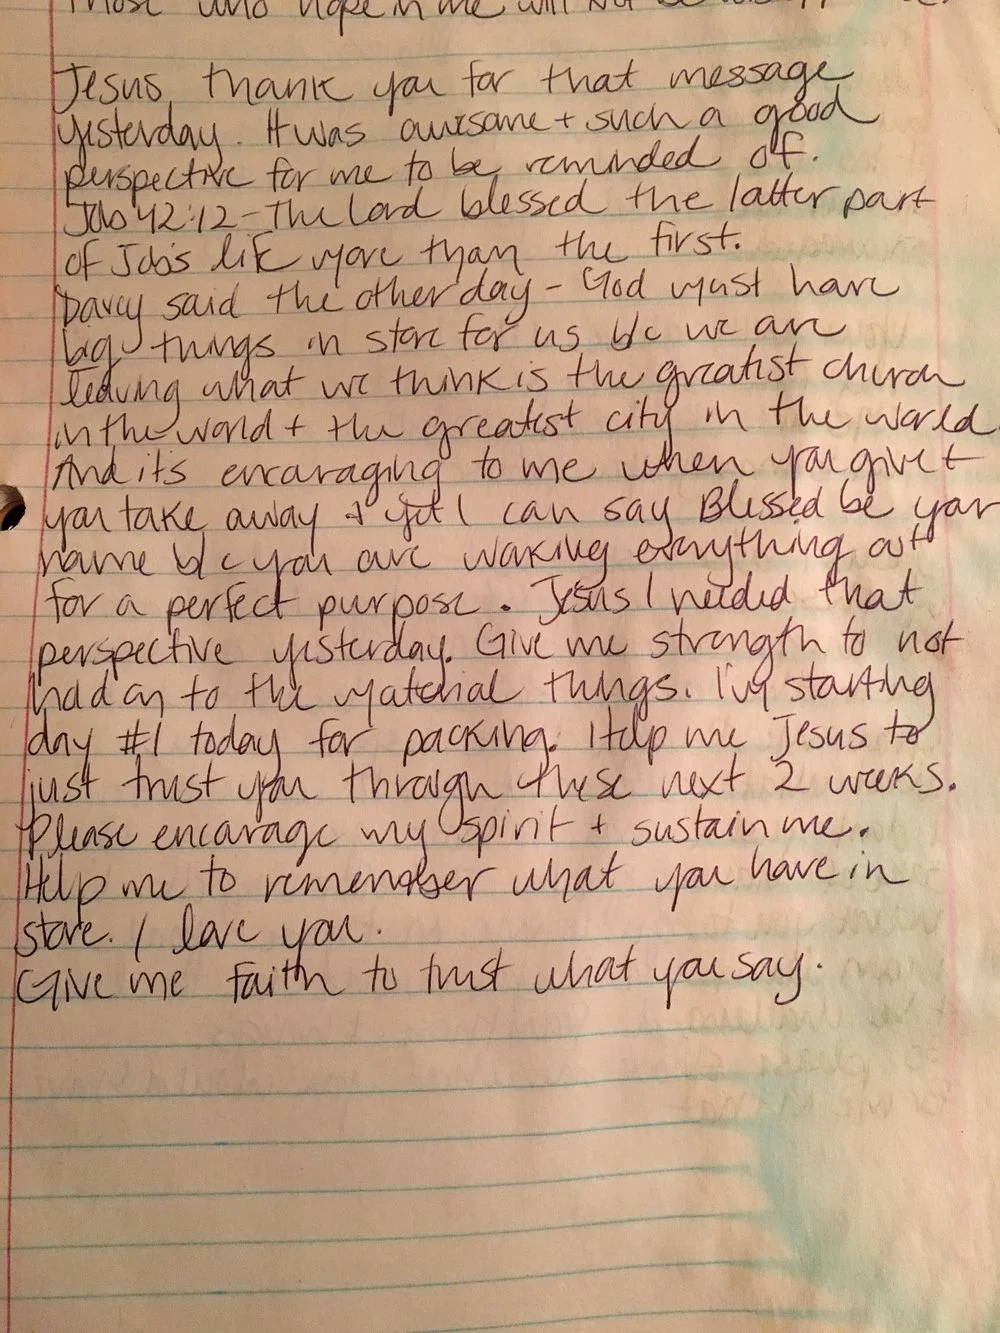 Those who hope in me will not be
Jesus, thank you for that message
yesterday. It was awesome + such a good
perspective for me to be reminded of.
Job 42:12 - The Lord blessed the latter part
of Job's life more than the first.
Darcy said the other day - God must have
big things in store for us b/c we are
leaving what we think is the greatest church
in the world + the greatest city in the world.
And it's encouraging to me when you give +
you take away + yet I can say Blessed be your
name b/c you are working everything out
for a perfect purpose. Jesus I needed that
perspective yesterday. Give me strength to not
hold on to the material things. I'm starting
day #1 today for packing. Help me Jesus to
just trust you through these next 2 weeks.
Please encourage my spirit + sustain me.
Help me to remember what you have in
store. I love you.
Give me faith to trust what you say.